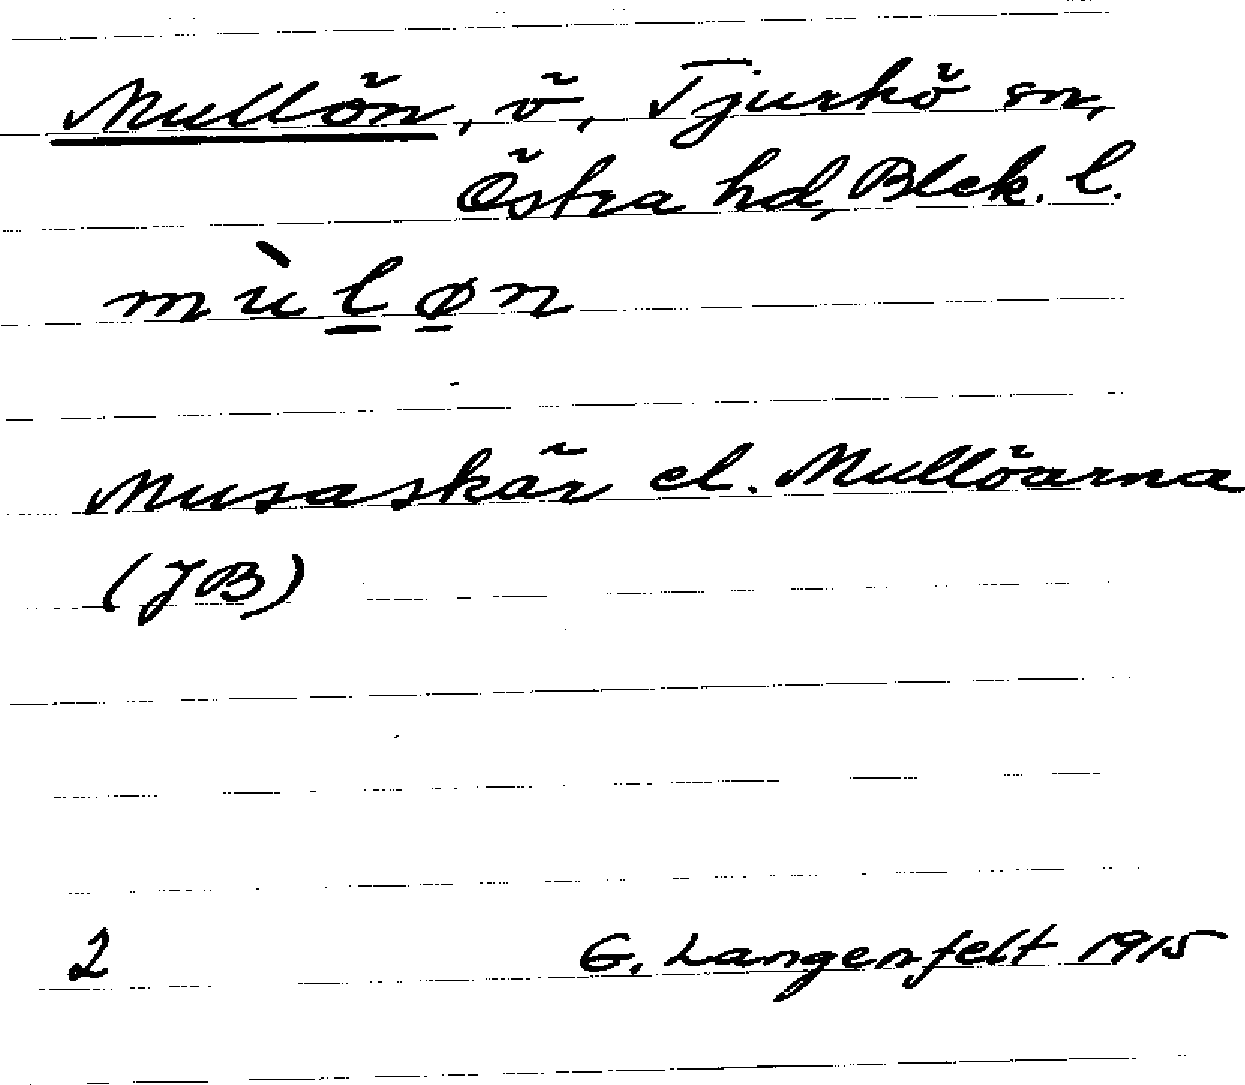 Mullön, ö, Tjurkö sn,
Östra hd, Blek. l.
mùløn
Musaskär el. Mullöarna
(JB)
2 G. Langenfelt 1915